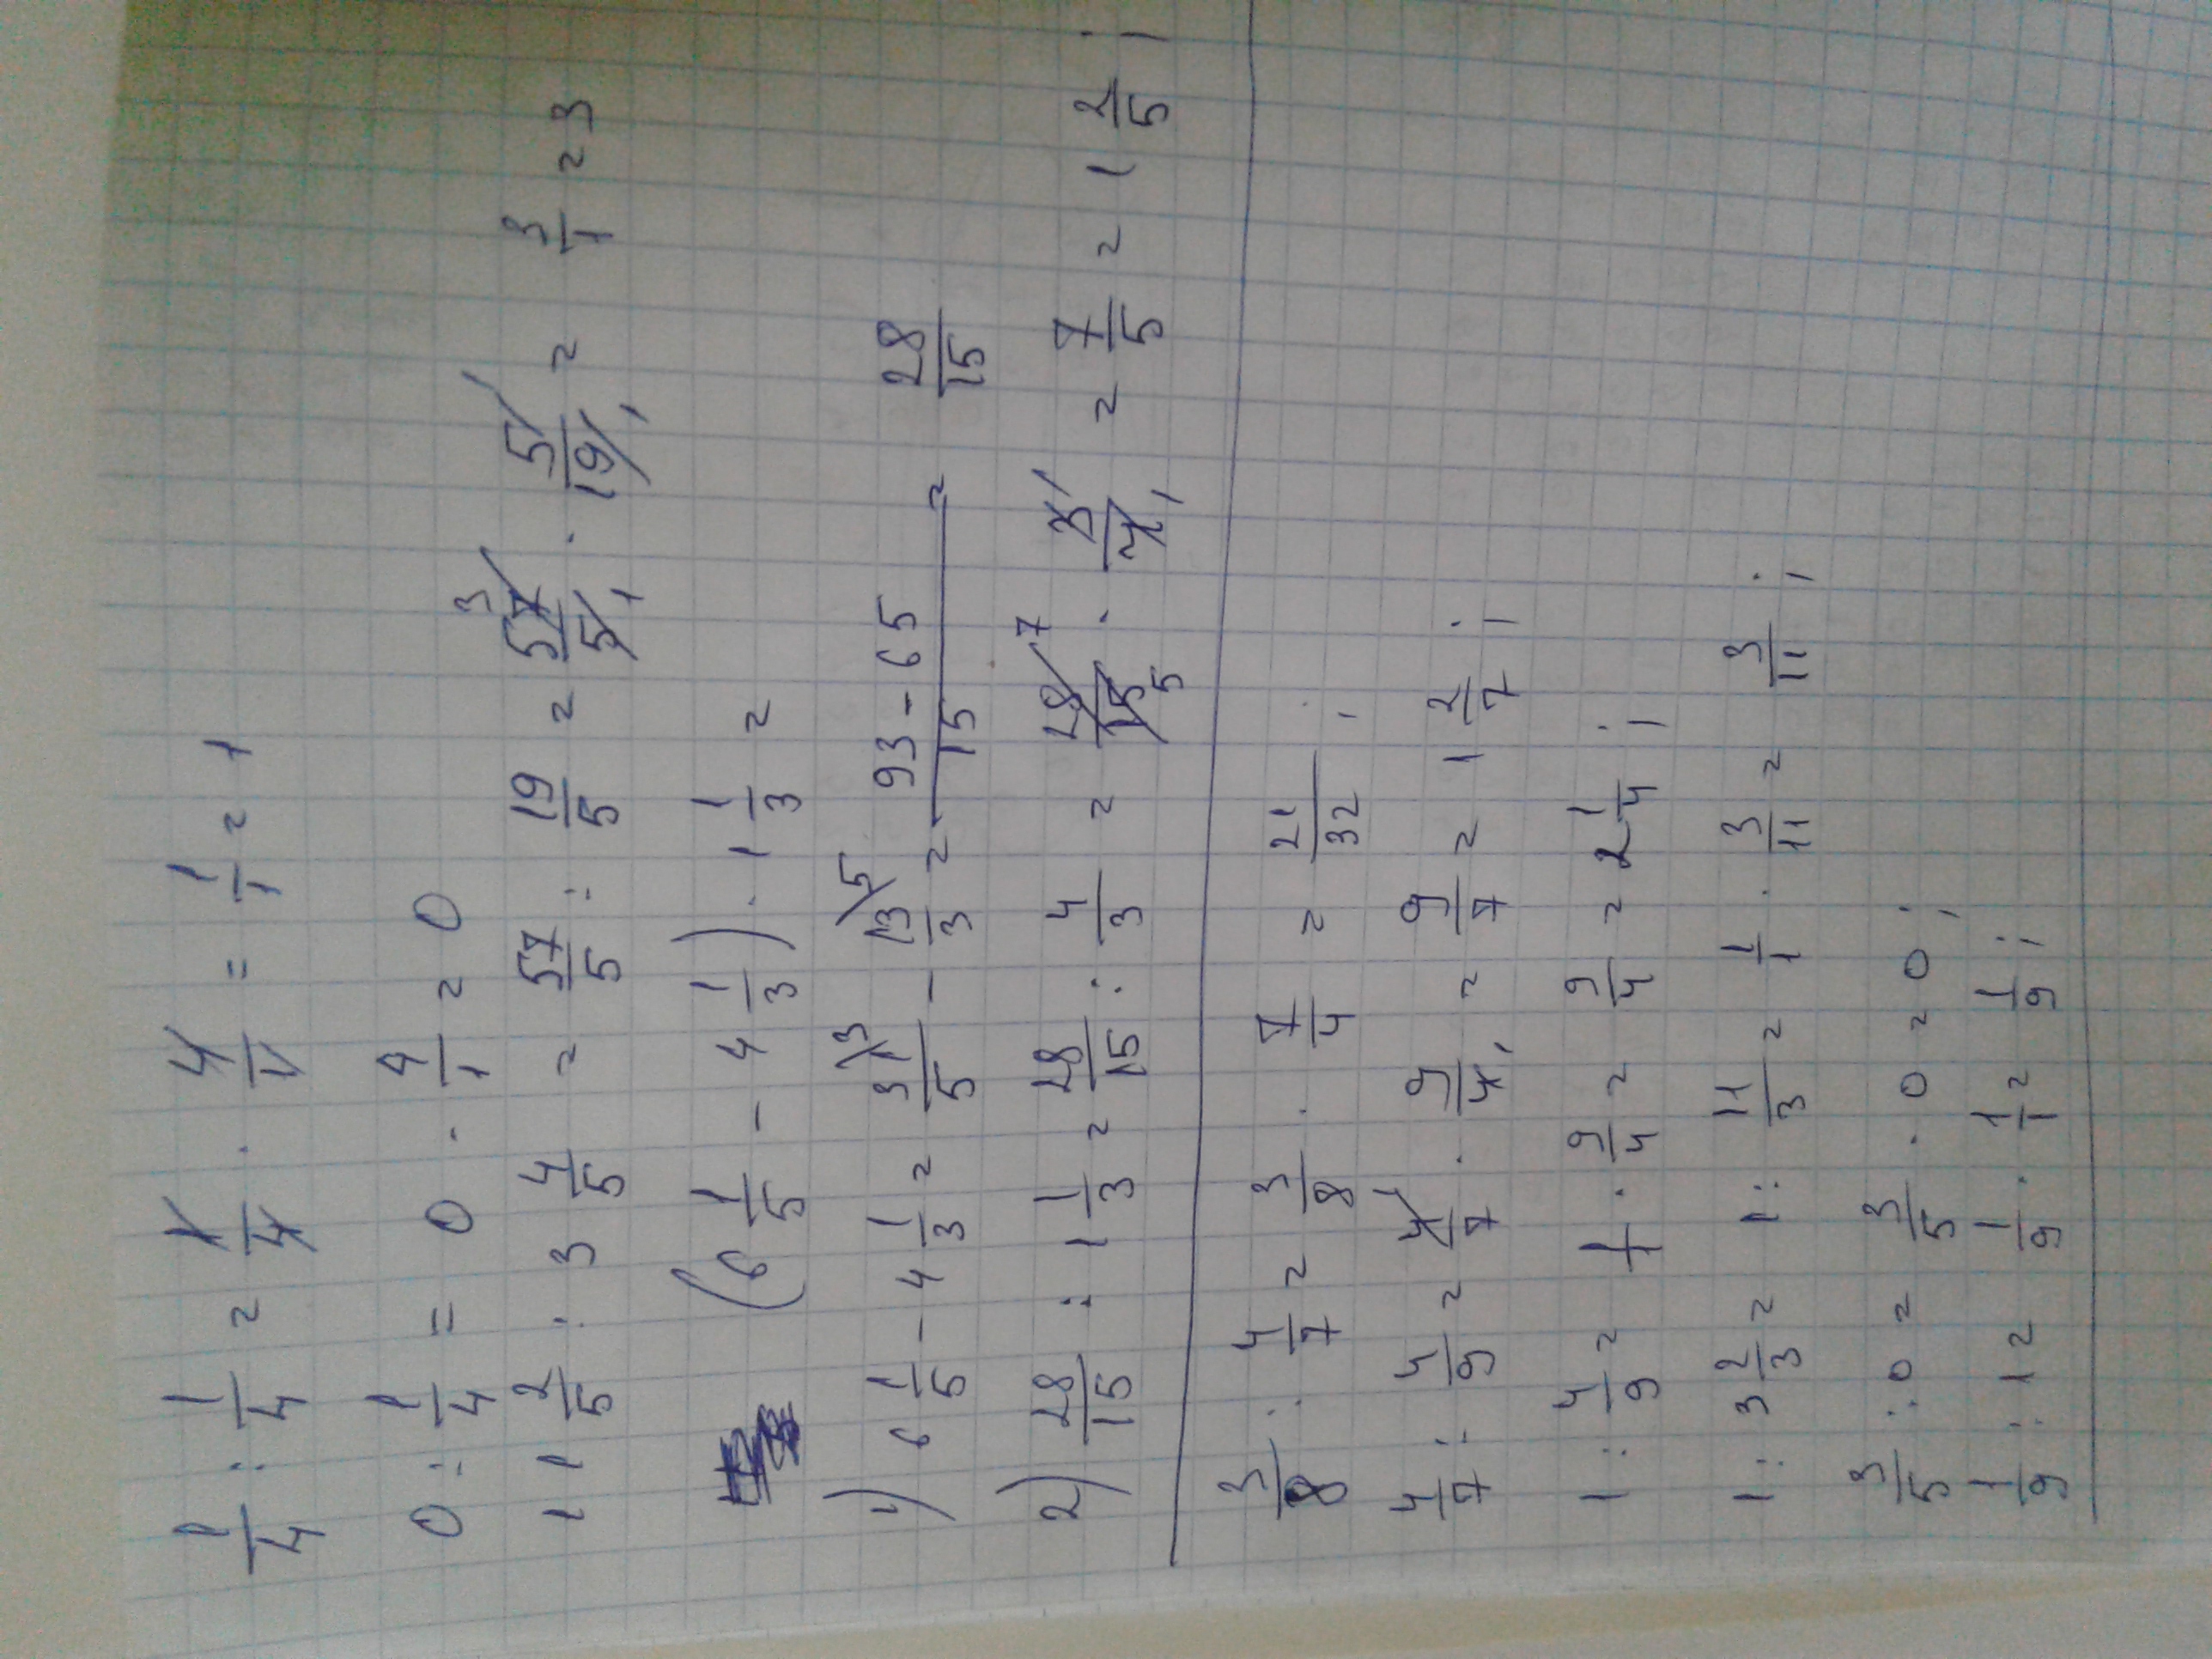 1/4 : 1/4 = 1/4 · 4/1 = 1/1 = 1
0 : 1/4 = 0 · 4/1 = 0
11 2/5 : 3 4/5 = 57/5 : 19/5 = 57 3/5 1 · 5/19 1 = 3/1 = 3
(6 1/5 - 4 1/3) · 1 1/3 =
1) 6 1/5 - 4 1/3 = 31 3/5 - 13 5/3 = 93 - 65/15 = 28/15
2) 28/15 : 1 1/3 = 28/15 : 4/3 = 28 7/15 5 · 3 1/4 1 = 7/5 = 1 2/5 ;
3/8 : 4/7 = 3/8 · 7/4 = 21/32 ;
4/7 : 4/9 = 4 1/7 · 9/4 1 = 9/7 = 1 2/7 ;
1 : 4/9 = 1/1 · 9/4 = 9/4 = 2 1/4 ;
1 : 3 2/3 = 1 : 11/3 = 1/1 · 3/11 = 3/11 ;
3/5 : 0 = 3/5 · 0 = 0 ;
1/9 : 1 = 1/9 · 1/1 = 1/9 ;